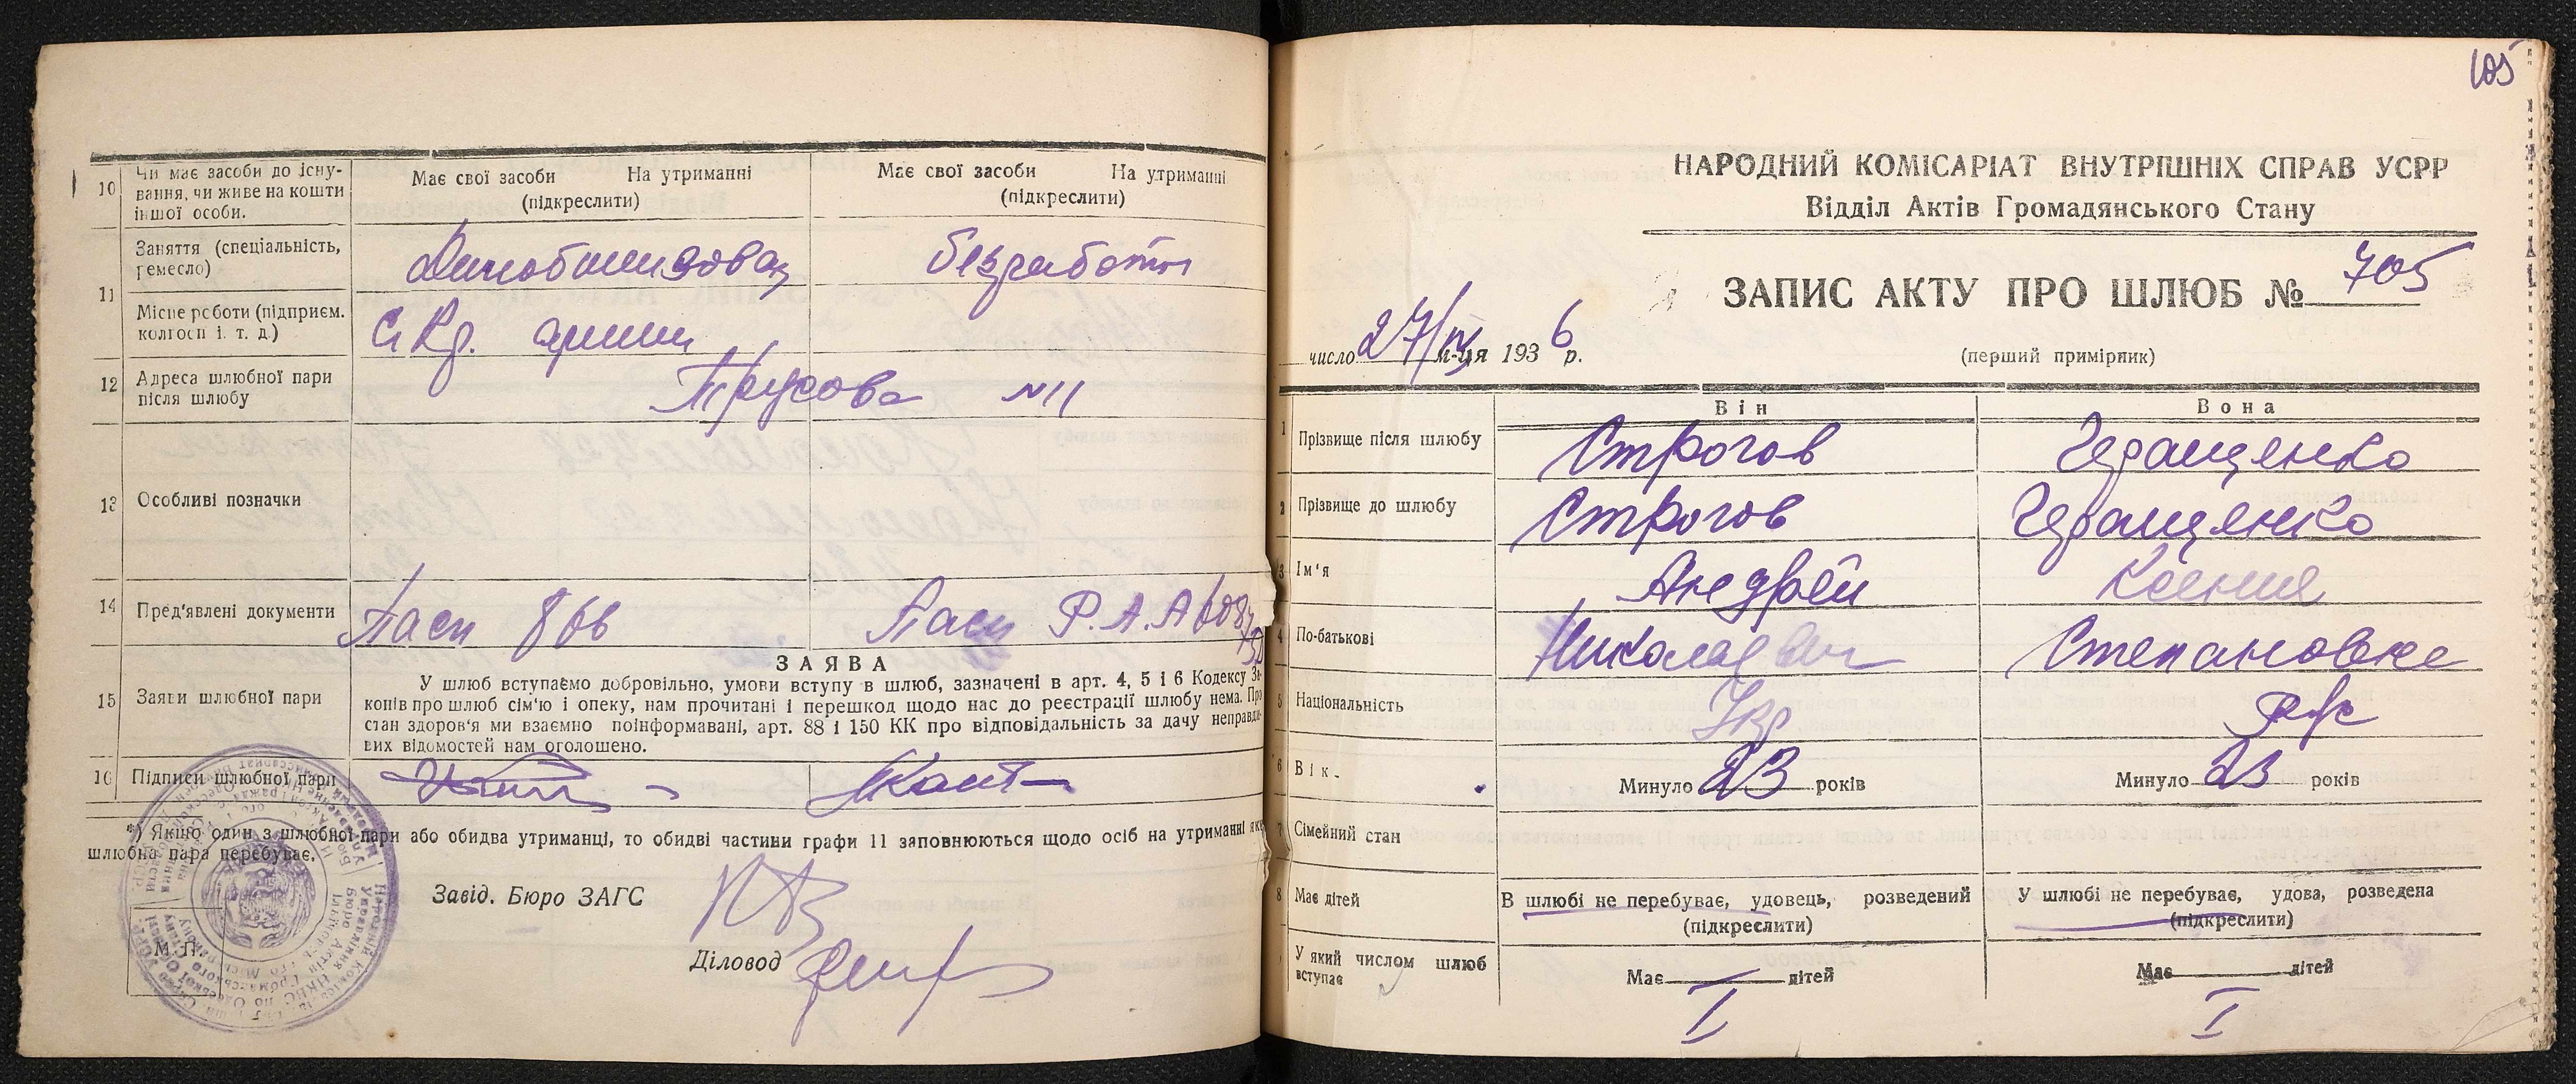 10 Чи має засоби до існу-
вання, чи живе на кошти
іншої особи.
Має свої засоби На утриманні
(підкреслити)
Має свої засоби На утриманні
(підкреслити)
11 Заняття (спеціальність,
ремесло)
безработн
Місце роботи (підприєм.
колгосп і. т. д.)
Кр. армии
12 Адреса шлюбної пари
після шлюбу
Трусова N 11
13 Особливі позначки
14 Пред'явлені документи
Пасп Пасп Р.А.А
15 Заяви шлюбної пари
ЗАЯВА
У шлюб вступаємо добровільно, умови вступу в шлюб, зазначені в арт. 4, 5 і 6 Кодексу За-
конів про шлюб сім'ю і опеку, нам прочитані і перешкод щодо нас до реєстрації шлюбу нема. Про
стан здоров'я ми взаємно поінформавані, арт. 88 і 150 КК про відповідальність за дачу неправди-
вих відомостей нам оголошено.
16 Підписи шлюбної пари
*) Якщо один з шлюбної пари або обидва утриманці, то обидві частини графи 11 заповнюються щодо осіб на утриманні яких
шлюбна пара перебуває.
Завід. Бюро ЗАГС
М. П.
Діловод
105
НАРОДНИЙ КОМІСАРІАТ ВНУТРІШНІХ СПРАВ УСРР
Відділ Актів Громадянського Стану
ЗАПИС АКТУ ПРО ШЛЮБ № 705
число 27/IV м-ця 1936 р.
(перший примірник)
Він Вона
1 Прізвище після шлюбу Строгов Геращенко
2 Прізвище до шлюбу Строгов Геращенко
3 Ім'я Андрей Ксения
4 По-батькові Николаевич Степановна
5 Національність Укр Рус
6 Вік Минуло 23 років Минуло 23 років
7 Сімейний стан
8 Має дітей
В шлюбі не перебуває, удовець, розведений
(підкреслити)
У шлюбі не перебуває, удова, розведена
(підкреслити)
У який числом шлюб
вступає
Має дітей Має дітей
I I